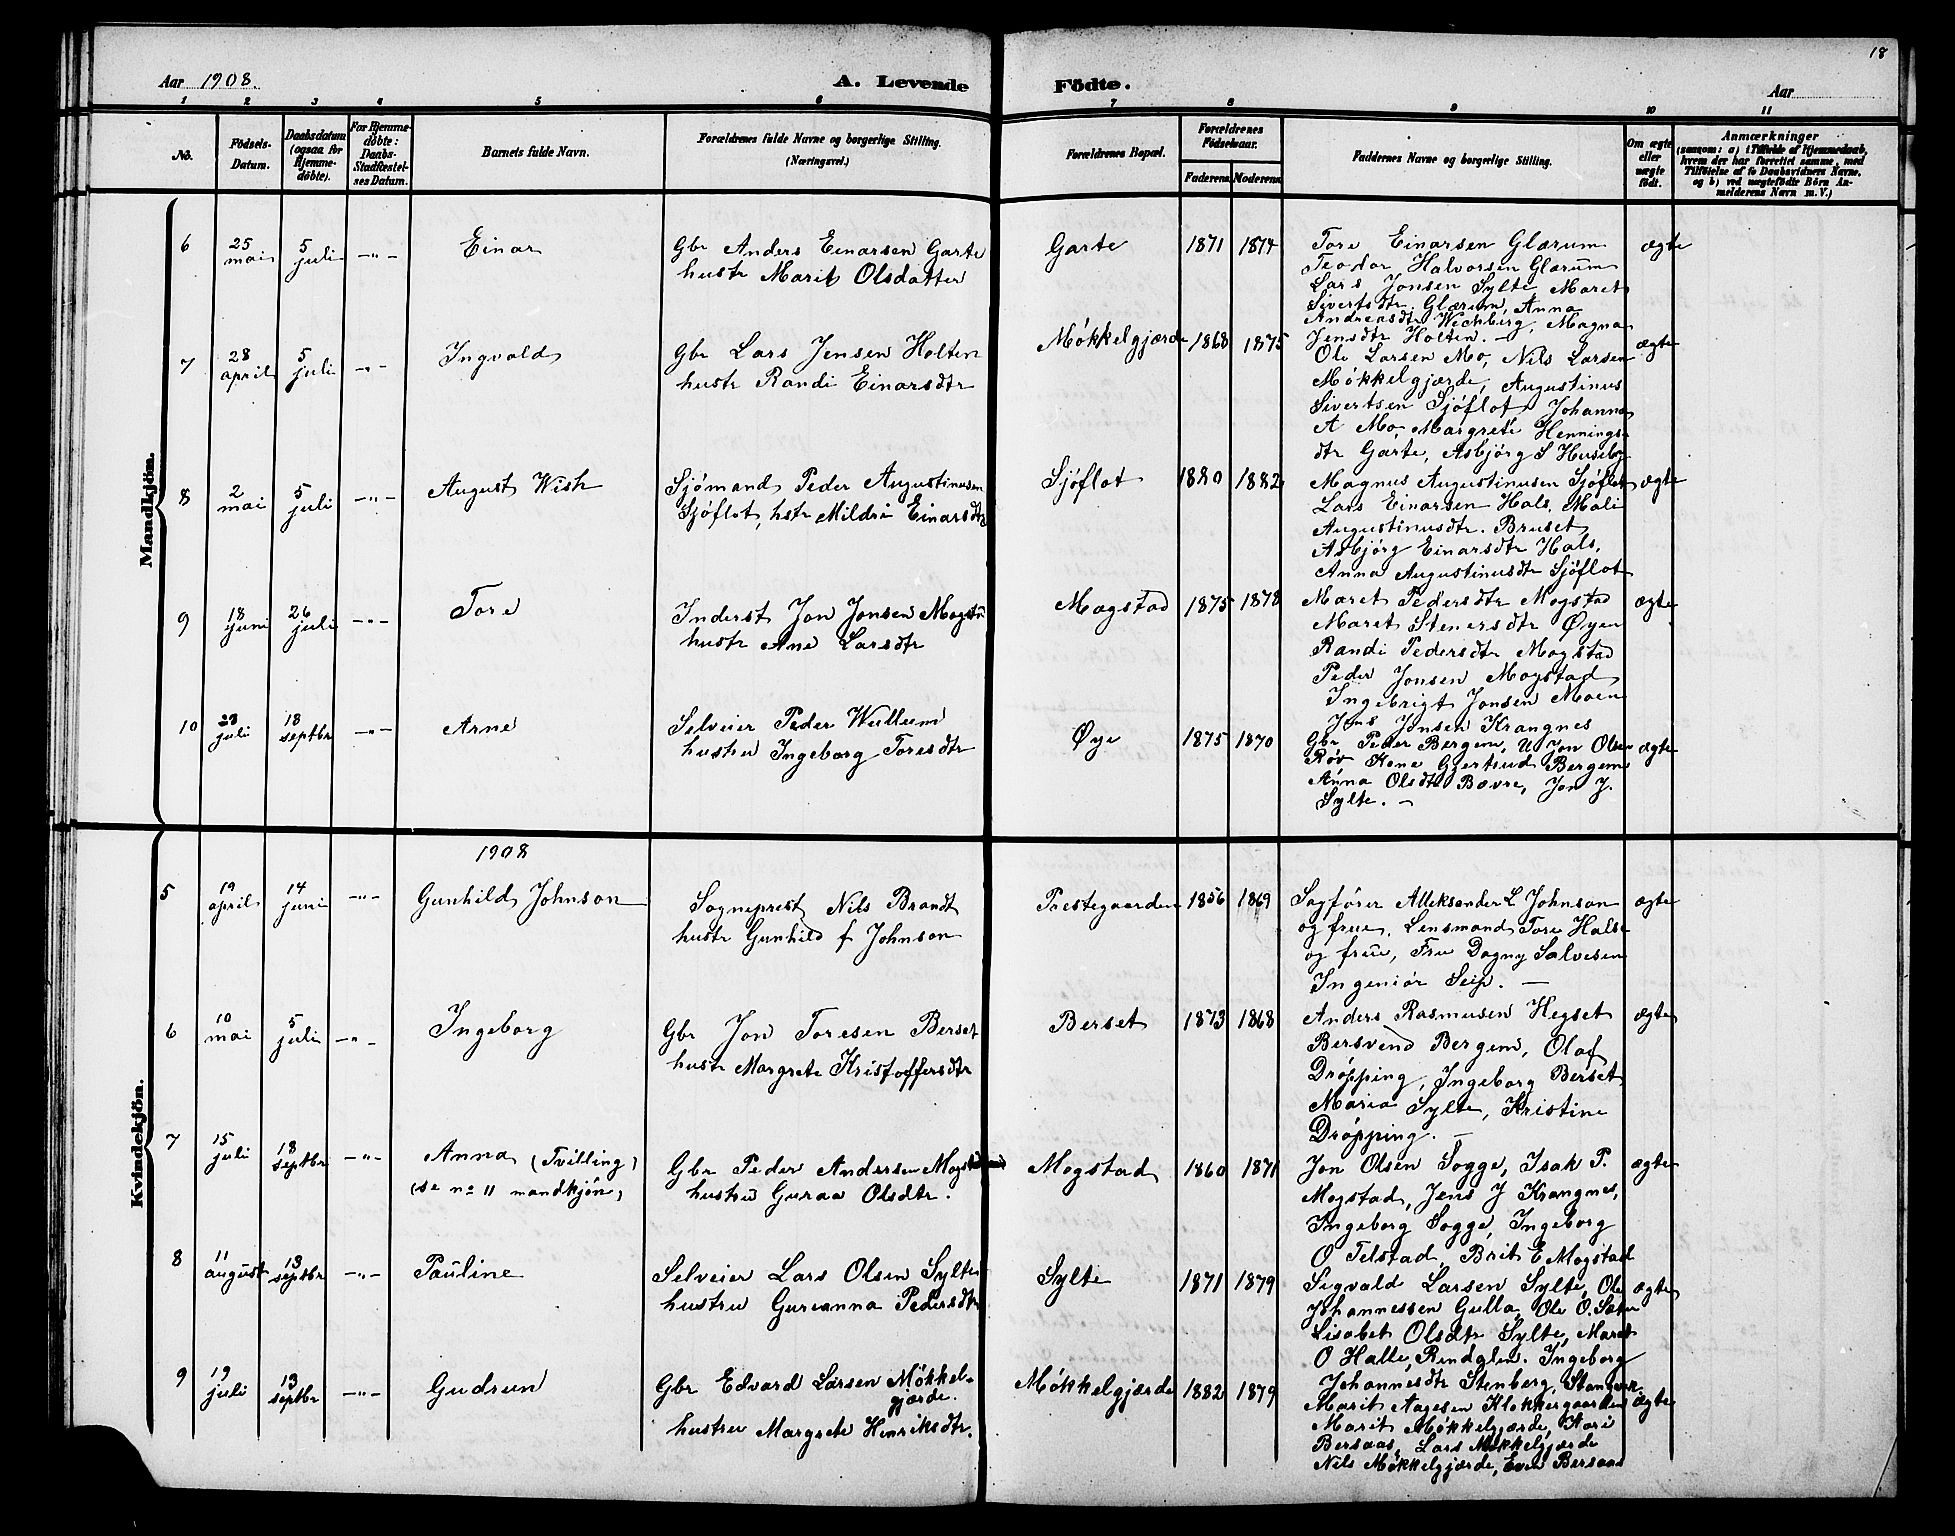 18
Aar 1908.
A. Levende
Födte.
Aar
1 2 3 4 5 6 7 8 9 10 11
No.
Födsels-
Datum.
Daabsdatum
(ogsaa for
Hjemme-
döbte).
For Hjemme-
döbte:
Daabs-
Stadfæstel-
ses Datum.
Barnets fulde Navn.
Forældrenes fulde Navne og borgerlige Stilling.
(Næringsvei.)
Forældrenes Bopæl.
Forældrenes
Födselsaar.
Faderens
Moderens
Faddernes Navne og borgerlige Stilling.
Om ægte
eller
uægte
født.
Anmærkninger
(saasom: a) i Tilfælde af Hjemmedaab,
hvem der har forrettet samme, med
Tilföielse af to Daabsvidners Navne,
og b) ved uægtefödte Börn An-
melderens Navn m. V.)
Mandkjön.
6
25
mai
5
juli
-"-
Einar
Gbr Anders Einarsen Garte
hustr Marit Olsdatter
Garte
1871
1874
Tore Einarsen Glærum
Teodor Halvorsen Glærum
Lars Jonsen Sylte Maret
Sivertsdtr Glærum, Anna
Andreasdtr Wichberg, Magna
Jensdtr Holten. -
ægte
7
28
april
5
juli
-"-
Ingvald
Gbr Lars Jensen Holten
hustr Randi Einarsdtr
Møkkelgjærde
1868
1875
Ole Larsen Mo, Nils Larsen
Møkkelgjærde, Augustinus
Sivertsen Sjöflot Johanna
A Mo Margrete Hennings-
dtr Garte, Asbjörg S Huseby
ægte
8
2
mai
5
juli
-"-
August Wish
Sjömand Peder Augustinusen
Sjöflot, hstr Mildri Einarsdtr
Sjöflot
1880
1882
Magnus Augustinusen Sjöflot
Lars Einarsen Hals, Mali
Augustinusdtr. Bruset
Asbjörg Einarsdtr Hals,
Anna Augustinusdtr Sjöflot
ægte
9
18
juni
26
juli
-"-
Tore
Inderst Jon Jonsen Mogstad
hustr Ane Larsdtr
Magstad
1875
1878
Maret Pedersdtr Mogstad
Maret Stenersdtr Øyen
Randi Pedersdtr Mogstad
Peder Jonsen Mogstad
Ingebrigt Jonsen Moen
Jens Jonsen Krangnes
ægte
10
28
juli
18
septbr
-"-
Arne
Selveier Peder Wullum
hustru Ingeborg Toresdtr
Øye
1875
1870
Gbr Peder Bergem, U Jon Olsen
Røv Kone Gjertrud Bergem
Anna Olsdtr Bævre, Jon J.
Sylte. -
ægte
Kvindekjön.
1908
5
19
april
14
juni
-"-
Gunhild Johnson
Sogneprest Nils Brandt
hustr Gunhild f Johnson
Prestegaarden
1856
1869
Sagförer Alleksander L Johnson
og frue, Lensmand Tore Halse
og frue, Fru Dagny Salvesen
Ingeniør Seip. -
ægte
6
10
mai
5
juli
-"-
Ingeborg
Gbr Jon Toresen Berset
hustr Margrete Kristoffersdtr
Berset
1873
1868
Anders Rasmusen Hegset
Bersvend Bergem, Olaf
Drøpping, Ingeborg Berset
Maria Sylte, Kristine
Drøpping. -
ægte
7
15
juli
18
septbr
-"-
Anna (Tvilling)
(se no 11 mandkjön)
Gbr Peder Andersen Mogstad
hustru Guraa Olsdtr.
Mogstad
1860
1871
Jon Olsen Sogge, Isak P.
Mogstad, Jens J Krangnes,
Ingeborg Sogge, Ingeborg
O Telstad, Brit E Mogstad
ægte
8
11
august
13
septbr
-"-
Pauline
Selveier Lars Olsen Sylte
hustru Gurianna Pedersdtr
Sylte
1871
1879
Sigvald Larsen Sylte, Ole
Johannessen Gulla, Ole O. Sæter
Lisabet Olsdtr Sylte, Maret
O Halle, Rindglen. Ingeborg
Johannesdtr Stenberg, Stangvik.
ægte
9
19
juli
13
septbr
-"-
Gudrun
Gbr Edvard Larsen Møkkel-
gjærde.
hustru Margrete Henriksdtr.
Møkkelgjærde
1882
1879
Marit Aagesen Klokkergaarden
Marit Møkkelgjærde, Kari
Bersaas, Lars Møkkelgjærde
Nils Møkkelgjærde, Even Bersaas
ægte